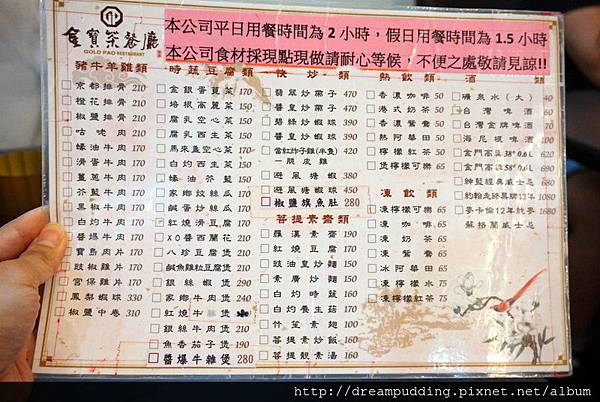 金寶茶餐廳
GOLD PAO RESTAURANT
本公司平日用餐時間為 2 小時，假日用餐時間為 1.5 小時
本公司食材採現點現做請耐心等候，不便之處敬請見諒!!
豬牛羊雞類
京都排骨 210
橙花排骨 210
椒鹽排骨 210
咕老肉 210
蠔油牛肉 210
滑蛋牛肉 210
薑蔥牛肉 210
芥藍牛肉 210
黑椒牛肉 210
白灼牛肉 210
醬爆牛肉 210
寶島肉片 210
豉椒雞片 210
宮保雞片 210
鳳梨蝦球 330
椒鹽中卷 310
時蔬豆腐類
金銀蛋莧菜 170
培根高麗菜 150
腐乳空心菜 150
腐乳西生菜 150
馬來盞空心菜 150
白灼西生菜 150
蠔油芥藍 150
家鄉炆絲瓜 170
鹹蛋炆絲瓜 170
紅燒滑豆腐 170
XO醬西蘭花 210
八珍豆腐煲 250
鹹魚雞粒豆腐煲 210
銀絲蝦煲 290
家鄉牛肉煲 240
銀絲牛肉煲 210
魚香茄子煲 190
醬爆牛雜煲 280
快炒類
翡翠炒帶子 470
醬皇炒帶子 470
醬皇炒蝦球 350
脆皮雞
避風塘雞 380
避風塘蝦球 450
椒鹽旗魚肚 280
菩提素齋類
羅漢素齋 190
紅燒豆腐 150
豉油皇炒麵 150
素廣炒麵 150
白灼時蔬 150
白灼養生菇 170
竹笙素翅 100
菩提炒飯 160
菩提靚素湯 160
熱飲類
香濃咖啡 50
港式奶茶 50
香濃鴛鴦 50
熱阿華田 50
檸檬紅茶 50
煲檸檬可樂 65
凍飲類
凍檸檬可樂 65
凍咖啡 65
凍奶茶 65
凍鴛鴦 65
冰阿華田 65
凍檸檬水 75
凍檸檬紅茶 75
酒類
礦泉水（大） 40
台灣啤酒
台灣金牌啤酒
海尼根啤酒
金門高粱38°0.6L
金門高粱58°0.6L
紳藍經典威士忌
約翰走路黑牌12年
麥卡倫12年純麥
蘇格蘭威士忌
http://dreampudding.pixnet.net/album